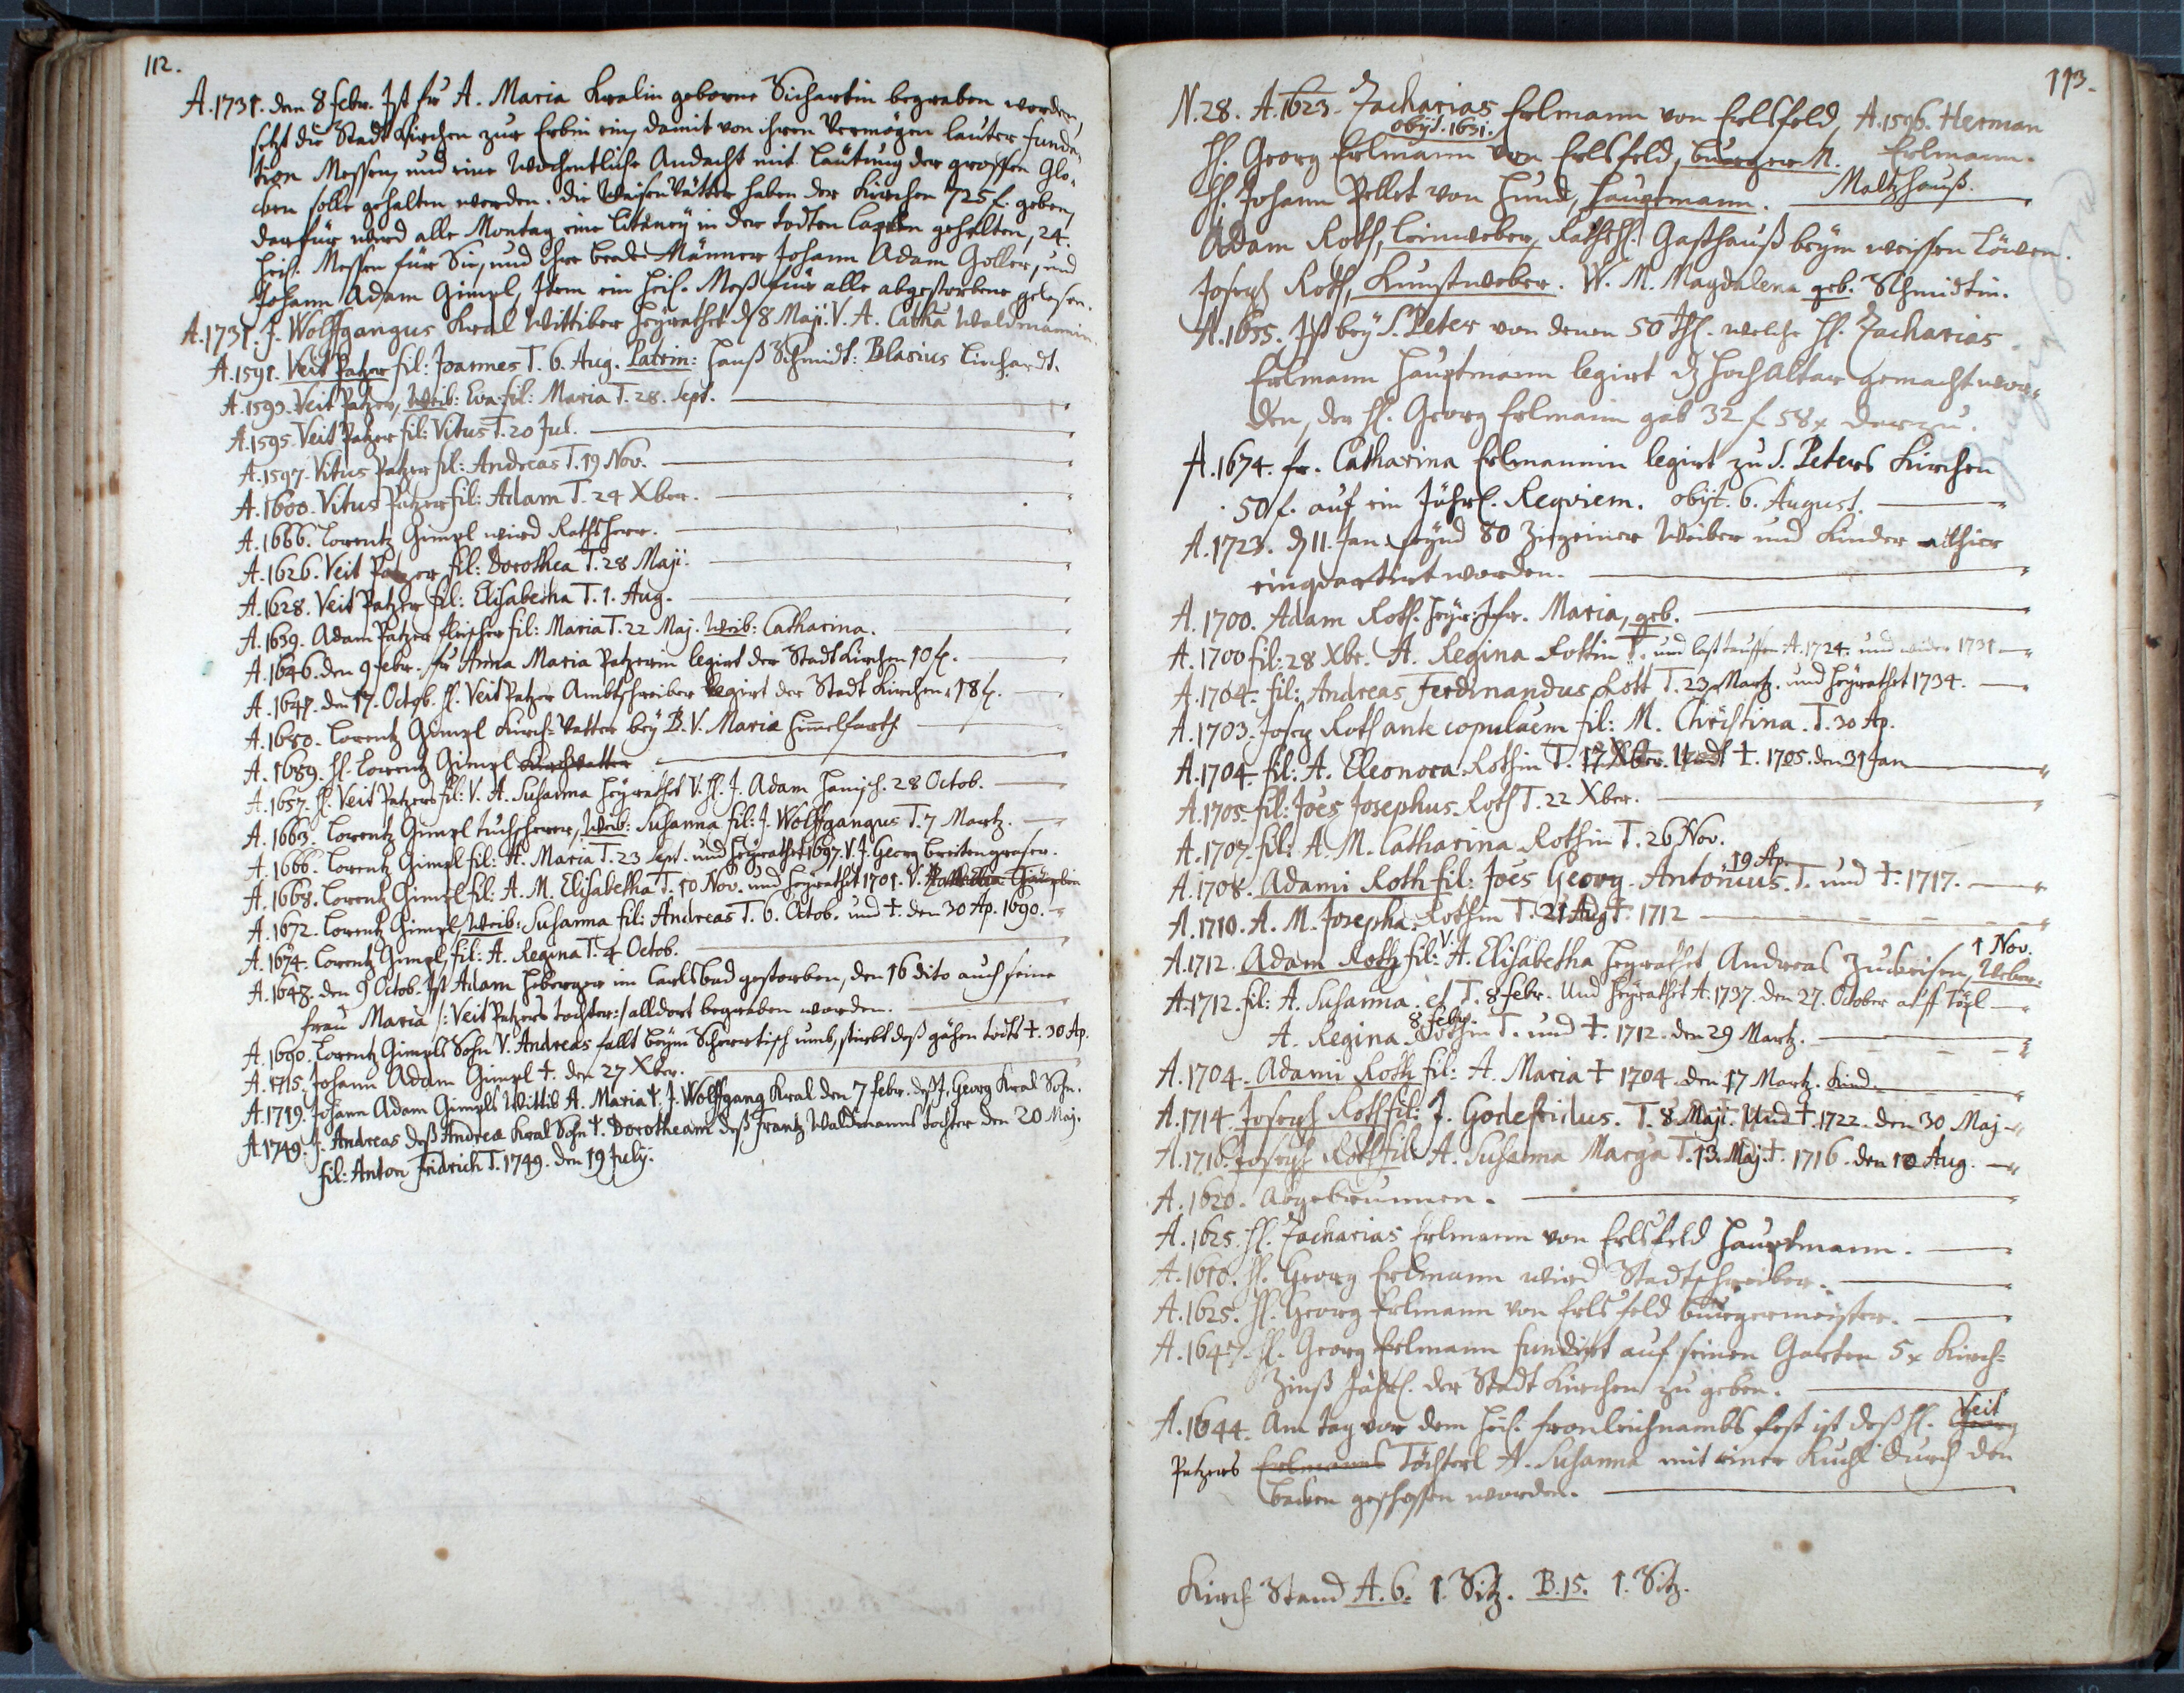 112.
A. 1731. den 8 febr. Ist fr A. Maria Kralin geborne Sichartin begraben worden,
setzt die Stadt Kirchen zur Erbin ein, damit von ihren Vermögen lauter funda¬
tion Messen, und eine Wochentliche Andacht mit Läutung der grossen Glo¬
cken solle gehalten werden. die Weisen Vätter haben der Kirchen 725 f. geben,
darfür wird alle Montag eine Litaney in der todten Capellen gehalten, 24.
heil. Messen für Sie, und ihre beede Männer Johann Adam Goller, und
Johann Adam Gimpl, Item ein heil. Meß für alle abgestorbene gelesen.
A. 1731. J. Wolffgangus Kral Wittiber heyrathet d 8 Maji. V. A. Catha Waldmannin.
A. 1591. Veit Patzer fil: Joannes T. 6. Aug. Patrin: Hanß Schmidt: Blasius Linhardt.
A. 1593. Veit Patzer, Weib: Eva fil: Maria T. 28. Sept.
A. 1595. Veit Patzer fil: Vitus T. 20 Jul.
A. 1597. Vitus Patzer fil: Andreas T. 19 Nov.
A. 1600. Vitus Patzer fil: Adam T. 24 Xber.
A. 1666. Lorentz Gimpl wird Rathsherr.
A. 1626. Veit Patzer fil: Dorothea T. 28 Maji.
A. 1628. Veit Patzer fil: Elisabetha T. 1. Aug.
A. 1639. Adam Patzer fleischer fil: Maria T. 22 Maj. Weib: Catharina.
A. 1646. den 9 febr. fr Anna Maria Patzerin legirt der Stadt Kirchen 10 f.
A. 1647. den 17. Octob. H. Veit Patzer Ambtschreiber legirt der Stadt Kirchen 18 f.
A. 1680. Lorentz Gimpl Kirch-Vatter bey B. V. Mariæ Himelfarth.
A. 1689. H. Lorentz Gimpl Kirchvatter
A. 1657. H. Veit Patzers fil: V. A. Susanna heyrathet V. H. J. Adam Hanisch. 28 Octob.
A. 1663. Lorentz Gimpl tuchscherer, Weib: Susanna fil: J. Wolffgangus T. 7 Martz.
A. 1666. Lorentz Gimpl fil: A. Maria T. 23 Sept. und heyrathet 1697. V. J. Georg Breitengraser.
A. 1668. Lorentz Gimpl fil: A. M. Elisabetha T. 10 Nov. und heyrathet 1701. V.
A. 1672. Lorentz Gimpl, Weib: Susanna fil: Andreas T. 6. Octob. und †. den 30 Ap. 1690.
A. 1674. Lorentz Gimpl, fil: A. Regina T. 4 Octob.
A. 1648. den 9 Octob. Ist Adam Heberger im Carlsbad gestorben, den 16 dito auch seine
frau Maria /: Veit Patzers tochter :/ alldort begraben worden.
A. 1690. Lorentz Gimpls Sohn V. Andreas fallt beym Scherrtisch umb, stirbt deß gähen todts †. 30 Ap.
A. 1715. Johann Adam Gimpl †. den 27 Xber.
A. 1719. Johann Adam Gimpls Wittib A. Maria †. J. Wolffgang Kral den 7 febr. deß J. Georg Kral Sohn.
A. 1749. J. Andreas deß Andreæ Kral Sohn †. Dorotheam deß Frantz Waldmanns tochter den 20 Maj.
fil: Anton Fridrich T. 1749. den 19 July.
113.
N. 28. A. 1623. Zacharias Erlmann von Erlsfeld, A. 1596. Herman
obijt. 1631.
H. Georg Erlmann von Erlsfeld, burger M. Erlmann.
H. Johann Pellet von Hund, Hauptmann. Maltzhauß.
Adam Roth, Leinweber, RathsH. Gasthauß beym weissen Löwen.
Joseph Roth, Kunstweber. W. M. Magdalena geb. Schmidtin.
A. 1655. Ist bey S. Peter von denen 50 Thl. welche H. Zacharias
Erlmann Hauptmann legirt d Hochaltar gemacht wor¬
den, der H. Georg Erlmann gab 32 f 58 x darzu.
A. 1674. fr. Catharina Erlmannin legirt zu S. Peters Kirchen
50 f. auf ein Jährl. Reqviem. obijt. 6. August.
A. 1723. d 11. Jan. seynd 80 Zigeiner Weiber und Kinder allhier
einqvartirt worden.
A. 1700. Adam Roth. heyr: Jfr. Maria, geb.
A. 1700 fil: 28 Xbr. A. Regina Rottin T. und last tauffen A. 1724. und wider 1731
A. 1704. fil: Andreas Ferdinandus Rott T. 23 Martz. und heyrathet 1734.
A. 1703. Joseph Roth ante copulaem fil: M. Christina. T. 30 Ap.
A. 1704. fil: A. Eleonora Rothin T. 17 Xber. Undt †. 1705. den 31 Jan
A. 1705. fil: Joes Josephus Roth T. 22 Xber.
A. 1707. fil: A. M. Catharina Rothin T. 26 Nov.
19 Ap.
A. 1708. Adami Roth fil: Joes Georg. Antonius. T. und †. 1717.
A. 1710. A. M. Josepha Rothin T. 21 Aug †. 1712
V. 1 Nov.
A. 1712. Adam Roth fil: A. Elisabetha heyrathet Andreas Zuckeisen, Weber.
A. 1712. fil: A. Susanna. et T. 8 febr. Und heyrathet A. 1737. den 27. October
8 febr.
A. Regina Rothin T. und †. 1712. den 29 Martz.
A. 1704. Adami Roth fil: A. Maria † 1704. den 17 Martz. Kind.
A. 1714. Joseph Roth fil: J. Godefridus. T. 8 Maji. Und †. 1722. den 30 Maj
A. 1716. Joseph Roth fil: A. Susanna Marga T. 13. Maj †. 1716. den 10 Aug.
A. 1620. abgebrunnen.
A. 1625. H. Zacharias Erlmann von Erlsfeld Hauptmann.
A. 1610. H. Georg Erlmann wird Stadtschreiber.
A. 1625. H. Georg Erlmann von Erlsfeld burgermeister.
A. 1647. H. Georg Erlmann fundirt auf seinen Garten 5 x Kirch=
Zinß Jährl. der Stadt Kirchen zu geben.
A. 1644. Am tag vor dem heil. fronleichnambs fest ist deß H. Georg Veit
Patzers Erlmanns Töchterl A. Susanna mit einer Kuchl durch den
backen geschossen worden.
Kirch Stand A. 6. 1. Sitz. B. 15. 1. Sitz.